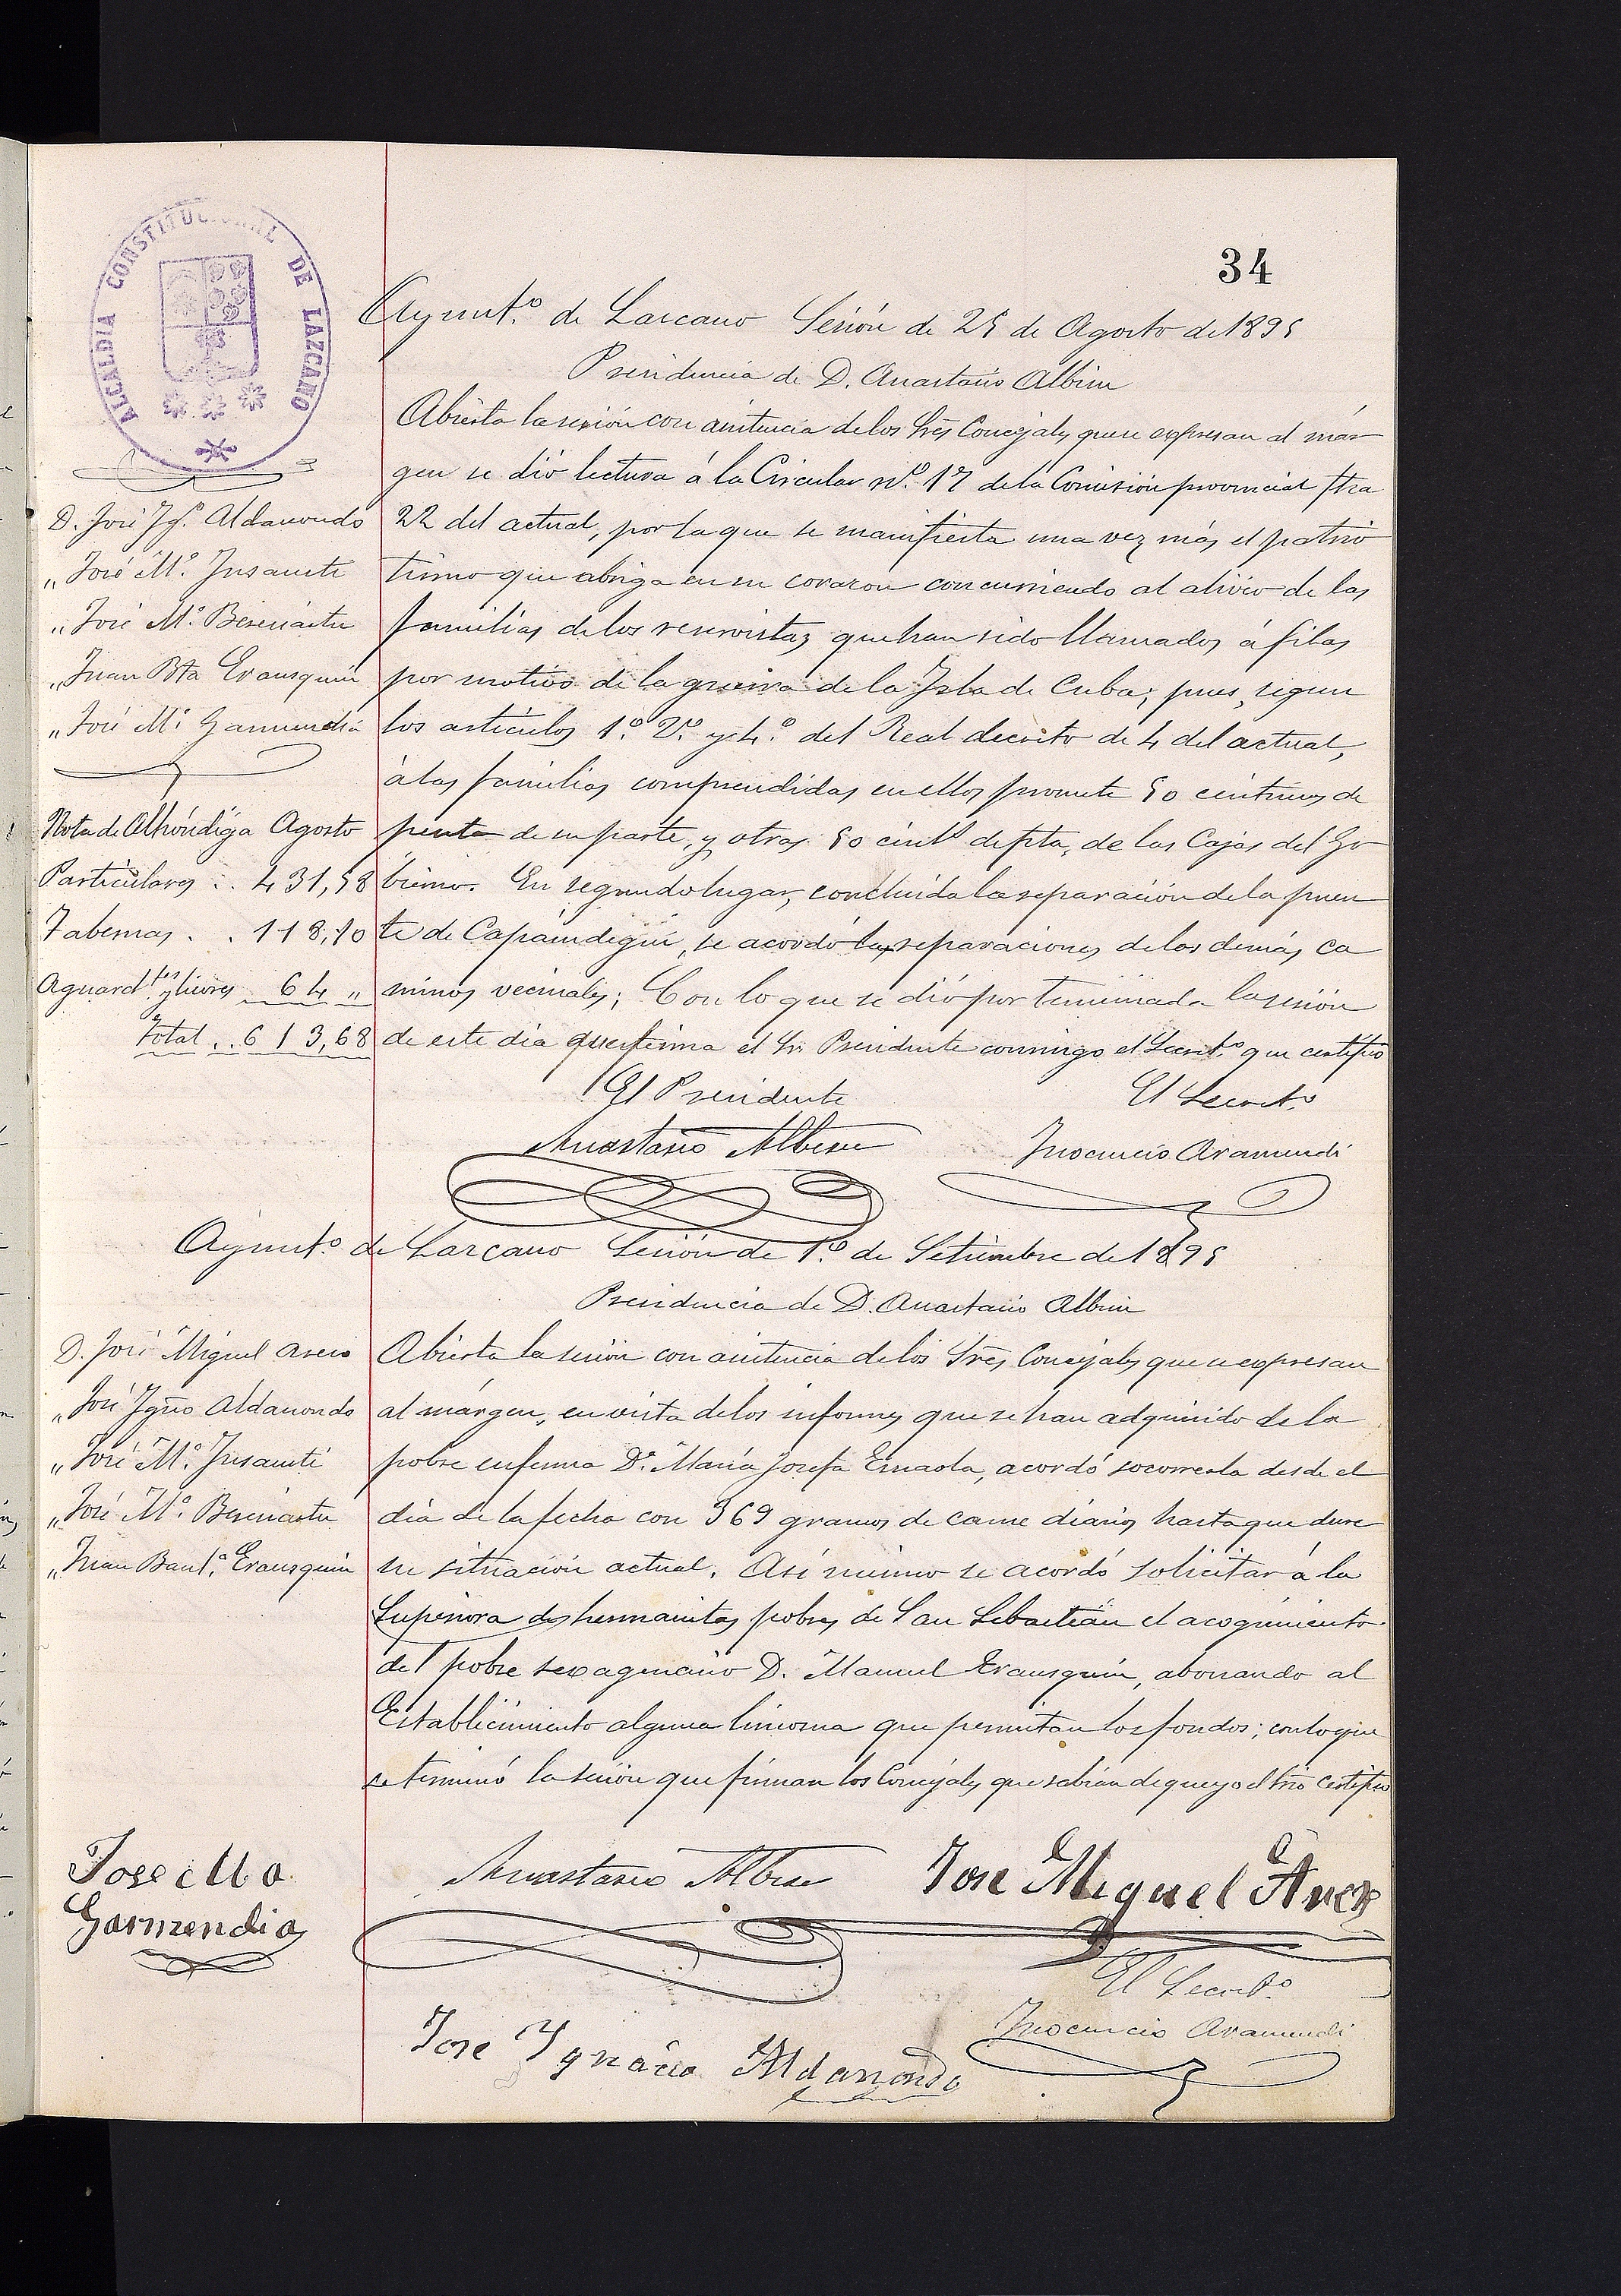 34
ALCALDIA CONSTITUCIONAL DE LAZCANO
Ayunt.º de Lazcano Sesión de 25 de Agosto de 1895
Presidencia de D. Anastasio Albisu
D. José Ig.º Aldanondo
„ José M.ª Insausti
„ José M.ª Beresiartu
„ Juan Bta Erausquin
„ José M.ª Garmendia
Nota de Alhóndiga Agosto
Particulares . . 431,58
Tabernas . . 118,10
Aguard.tes y licores 64 „
Total . . 613,68
Abierta la sesión con asistencia de los Sres Concejales que se expresan al már
gen se dió lectura á la Circular nº. 17 de la Comisión provincial fha
22 del actual, por la que se manifiesta una vez más el patrio
tismo que abriga en su corazon concurriendo al alivio de las
familias de los reservistas que han sido llamados á filas
por motivo de la guerra de la Isla de Cuba; pues, segun
los artículos 1.º 2.º y 4.º del Real decreto de 4 del actual,
á las familias comprendidas en ellos promete 50 céntimos de
peseta de su parte, y otras 50 cént.s de pta, de las Cajas del Go
bierno. En segundo lugar, concluida la reparación de la puen
te de Capaindegui, se acordó las reparaciones de los demás ca
minos vecinales; Con lo que se dió por terminada la sesión
de este dia que firma el Sr. Presidente conmigo el Secret.º que certifico
El Presidente
El Secret.º
Anastasio Albisu
Inocencio Aramendi
Ayunt.º de Lazcano Sesión de 1.º de Setiembre de 1895
Presidencia de D. Anastasio Albisu
D. José Miguel
„ José Ign̄o Aldanondo
„ José M.ª Insausti
„ José M.ª Beresiartu
„ Juan Baut.ª Erausquin
Abierta la sesión con asistencia de los Sres Concejales que se expresan
al márgen, en vista de los informes que se han adquirido de la
pobre enferma D.ª María Josefa, acordó socorrerla desde el
dia de la fecha con 369 gramos de carne diarios hasta que dure
su situación actual. Así mismo se acordó solicitar á la
Superiora de hermanitas pobres de San Sebastián el acogimiento
del pobre sexagenario D. Manuel Erausquin, abonando al
Establecimiento alguna limosna que permitan los fondos; con lo que
se terminó la sesión que firman los Concejales que sabian de que yo el Srio certifico
Jose Ma
Garmendia
Anastasio Albisu
Jose Miguel
El Secret.º
Inocencio Aramendi
Jose Ygnacio Aldanondo